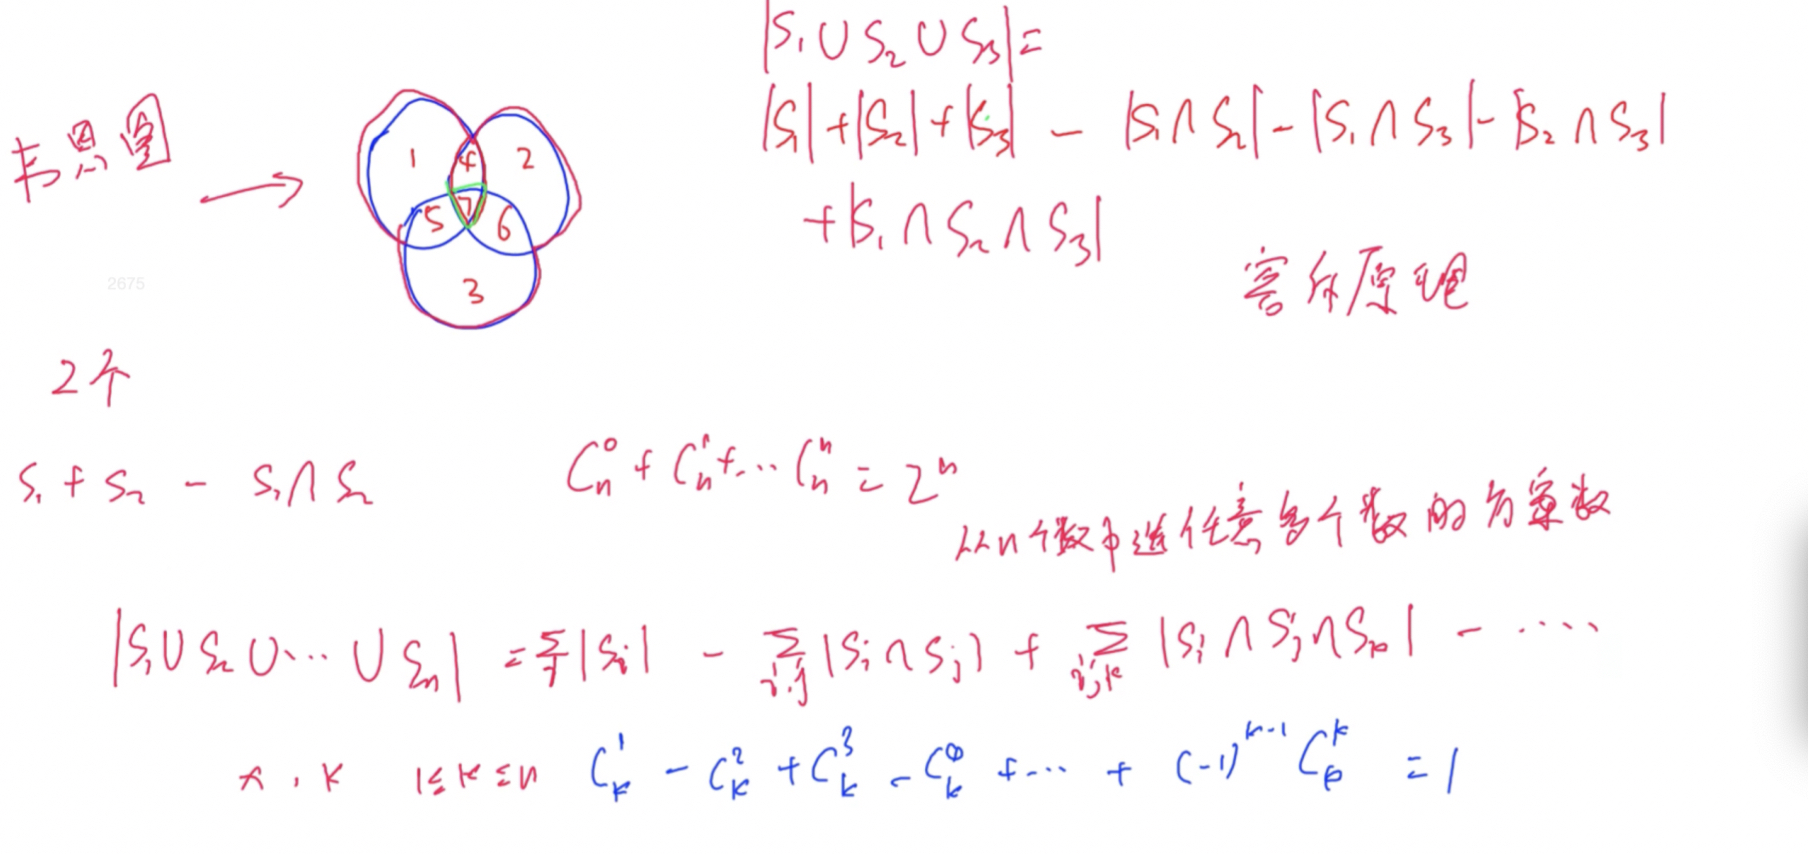 |S₁∪S₂∪S₃|=
|S₁|+|S₂|+|S₃| - |S₁∩S₂|-|S₁∩S₃|-|S₂∩S₃|
+|S₁∩S₂∩S₃|
韦恩图 →
1 4 2
5 7 6
3
容斥原理
2675
2个
S₁+S₂ - S₁∩S₂
Cₙ⁰+Cₙ¹+…Cₙⁿ=2ⁿ
从n个数中选任意多个数的方案数
|S₁∪S₂∪…∪Sₙ| =∑ᵢ|Sᵢ| - ∑ᵢ,ⱼ|Sᵢ∩Sⱼ| + ∑ᵢ,ⱼ,ₖ|Sᵢ∩Sⱼ∩Sₖ| - ….
x, k 1≤k≤n Cₖ¹ - Cₖ² + Cₖ³ - Cₖ⁴ +… + (-1)ᵏ⁻¹Cₖᵏ =1